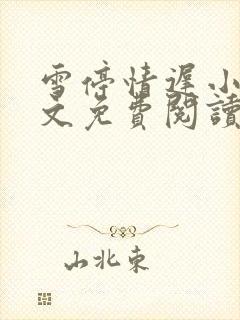 雪停情遲小
文免費閱讀
山北東